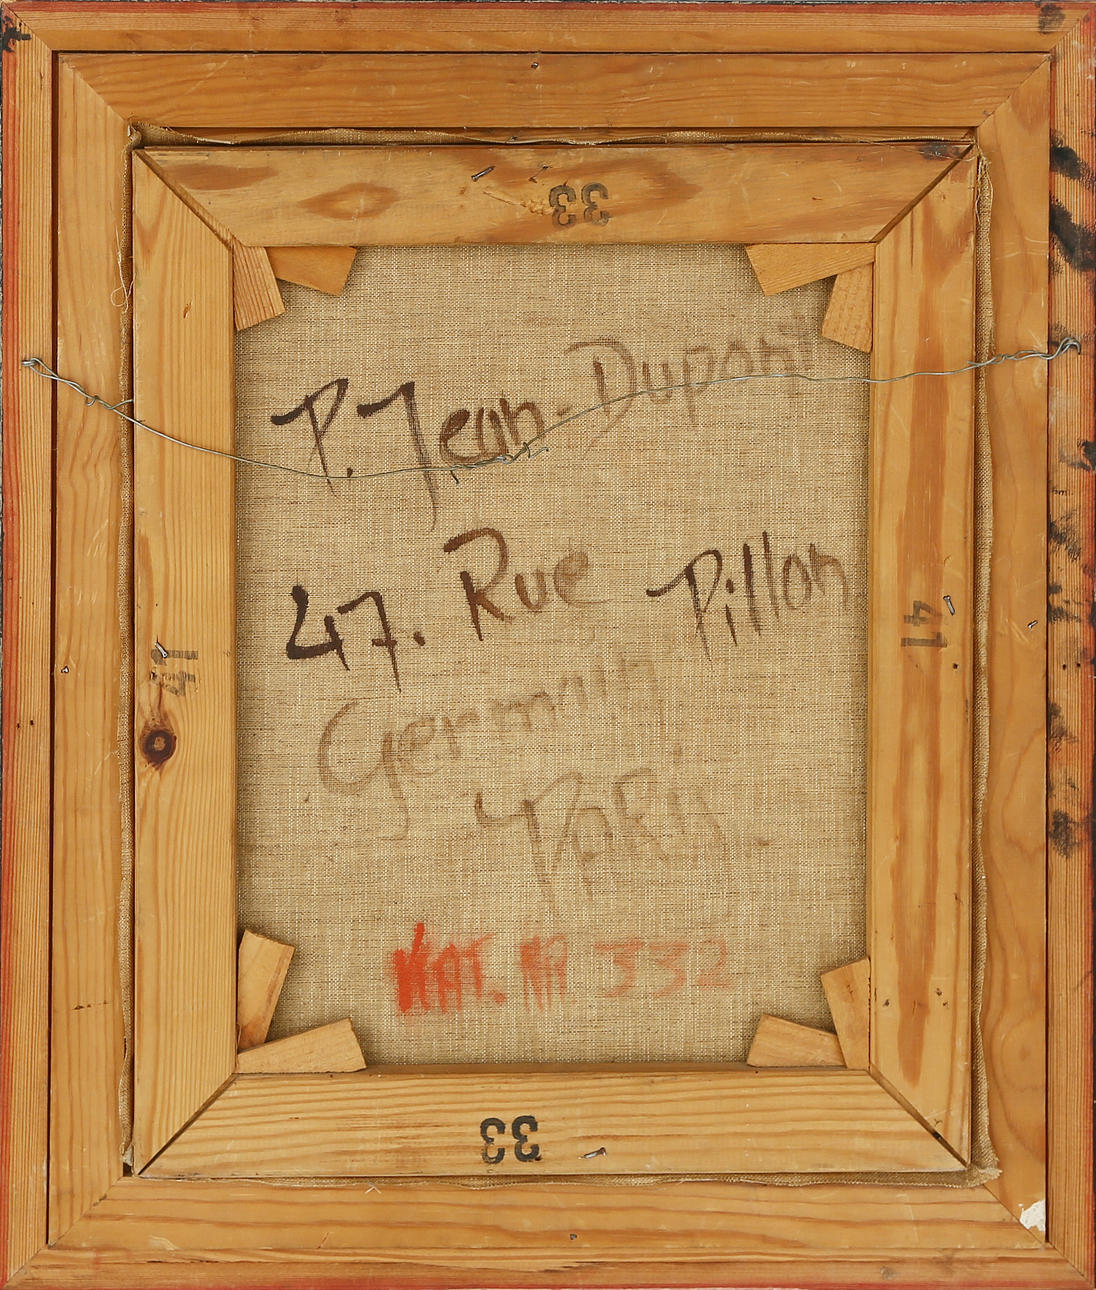 33
P. Jean-Dupont
47. Rue Pillon
Germain
4 PARis.
41
41
KAT. NR 332
33